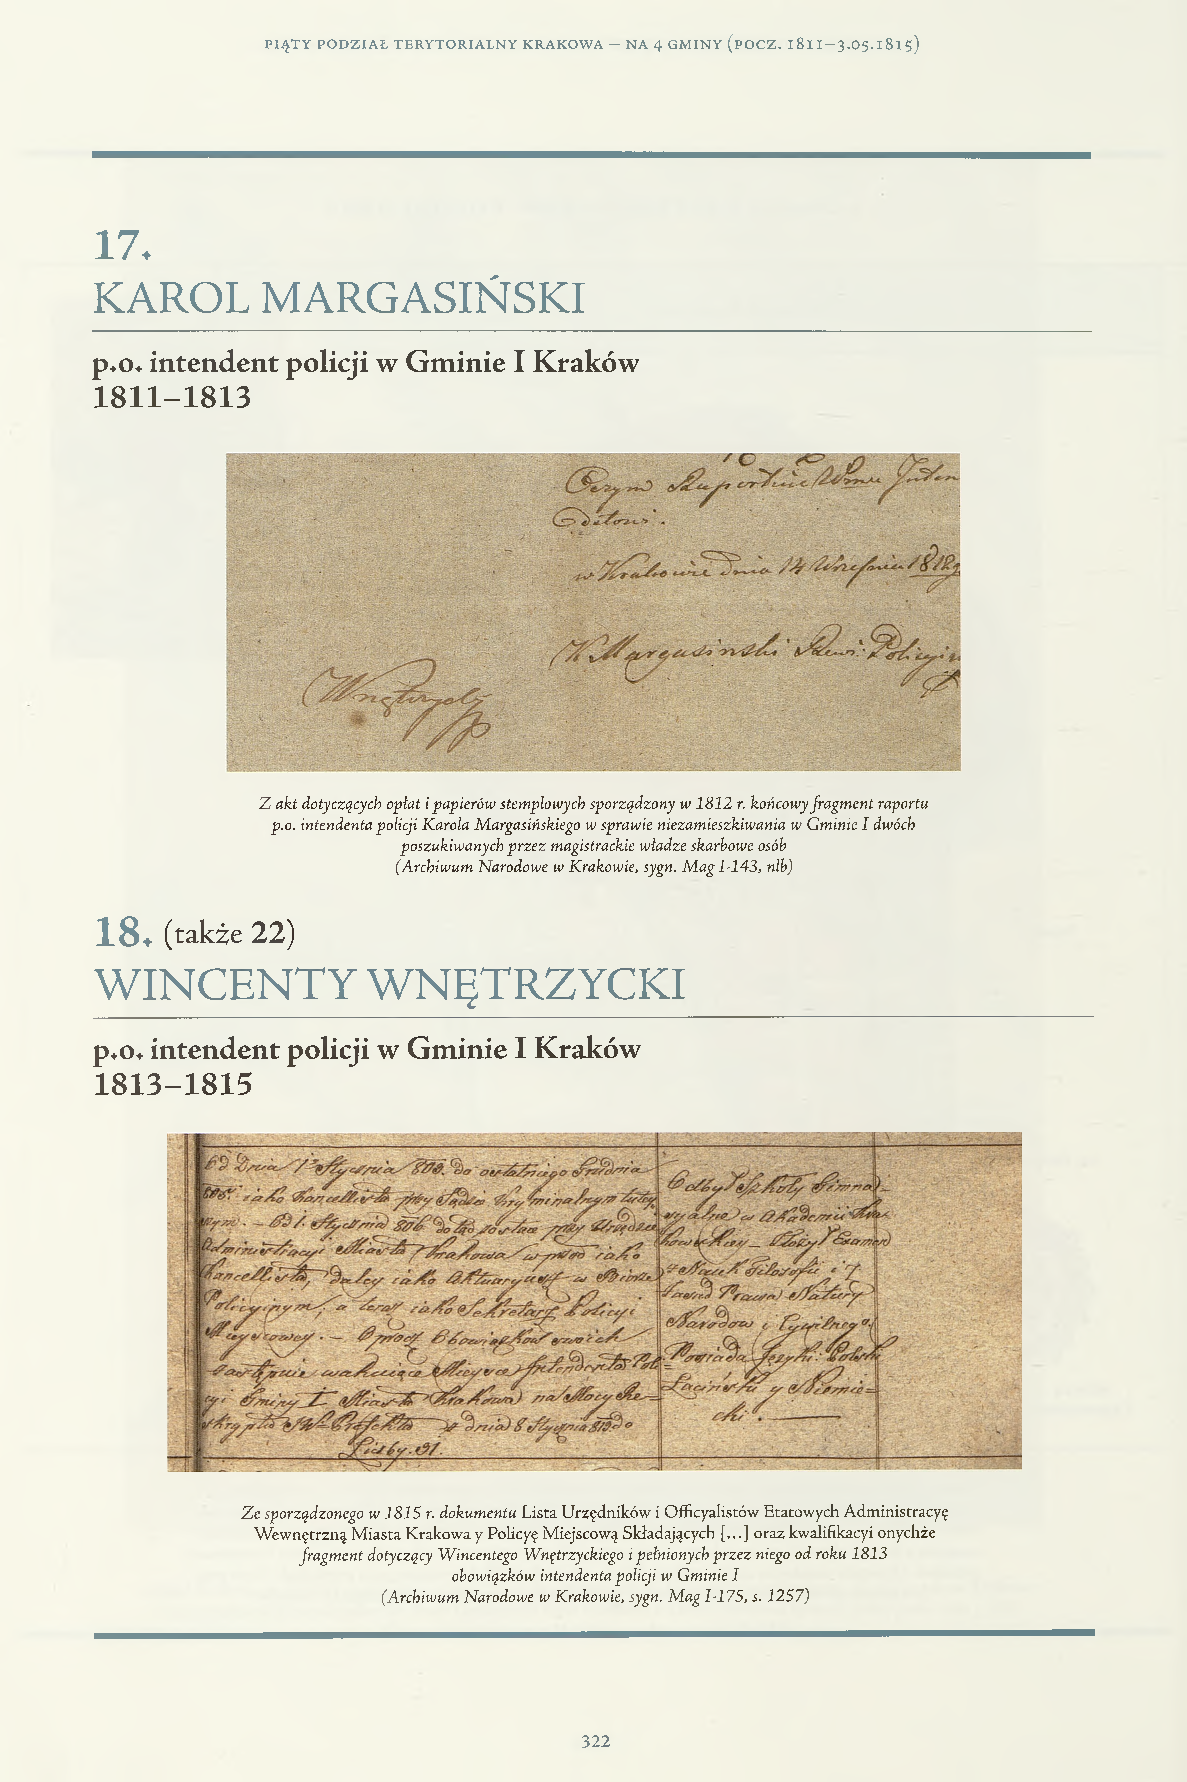 PIĄTY PODZIAŁ TERYTORIALNY KRAKOWA — NA 4 GMINY (POCZ. 1811—3.05.1815)
17.
KAROL MARGASIŃSKI
p.o. intendent policji w Gminie I Kraków
1811–1813
w Krakowie dnia 14 Września 1812
Margasinski
Z akt dotyczących opłat i papierów stemplowych sporządzony w 1812 r. końcowy fragment raportu
p.o. intendenta policji Karola Margasińskiego w sprawie niezamieszkiwania w Gminie I dwóch
poszukiwanych przez magistrackie władze skarbowe osób
(Archiwum Narodowe w Krakowie, sygn. Mag I-143, nlb)
18. (także 22)
WINCENTY WNĘTRZYCKI
p.o. intendent policji w Gminie I Kraków
1813–1815
Od Dnia 1 Stycznia 803. do ostatniego Grudnia
805. iako Kancellista przy Sądzie Kryminalnym tutey
szym. – Od 1. Stycznia 806. dotąd zostaie przy Urzędzie
Administracyi Miasta Krakowa wprzód iako
Kancellista, daley iako Aktuaryusz w Biórze
Policyinym, a teraz iako Sekretarz Policyi
Mieyscowey. – Oprócz Obowiązków swoich
zastępuie wakuiące Mieysce Intendenta Poli
cyi Gminy I Miasta Krakowa na Mocy Re–
skryptu Prefekta z dnia 8 Stycznia 813 do
Liczby. 91.
Odbył Szkoły Gimna–
zyalne w Akademii Kra–
kowskiey – Złożył Examen
z Nauk Filozofii i z
Zasad Prawa Natury
Narodów i Cywilnego.
Posiada Języki: Polski
Łaciński y Niemie=
cki. –
Ze sporządzonego w 1815 r. dokumentu Lista Urzędników i Officyalistów Etatowych Administracyę
Wewnętrzną Miasta Krakowa y Policyę Miejscową Składających [...] oraz kwalifikacyi onychże
fragment dotyczący Wincentego Wnętrzyckiego i pełnionych przez niego od roku 1813
obowiązków intendenta policji w Gminie I
(Archiwum Narodowe w Krakowie, sygn. Mag I-175, s. 1257)
322